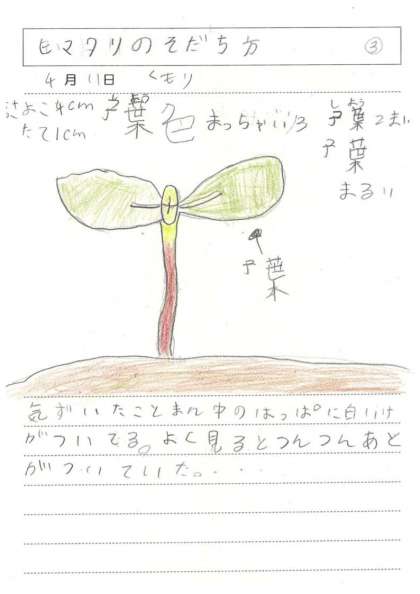 ヒマワリのそだち方 ③
4月11日 くもり
よこ4cm
たて1cm
子葉色 まっちゃいろ
子葉 2まい
子葉
まるい
子葉
気ずいたことまん中のはっぱに白いけ
がついてる。よく見るとつんつんあと
がついていた。・・・